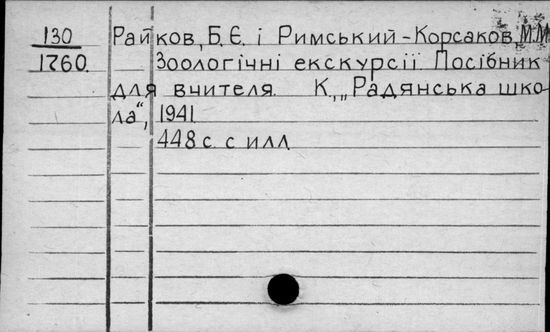 130 Райков, Б. Є. і Римський-Корсаков, М.М
1760. Зоологічні екскурсії Посібник
для вчителя. К., „Радянська шко-
ла“, 1941
448 с. с илл